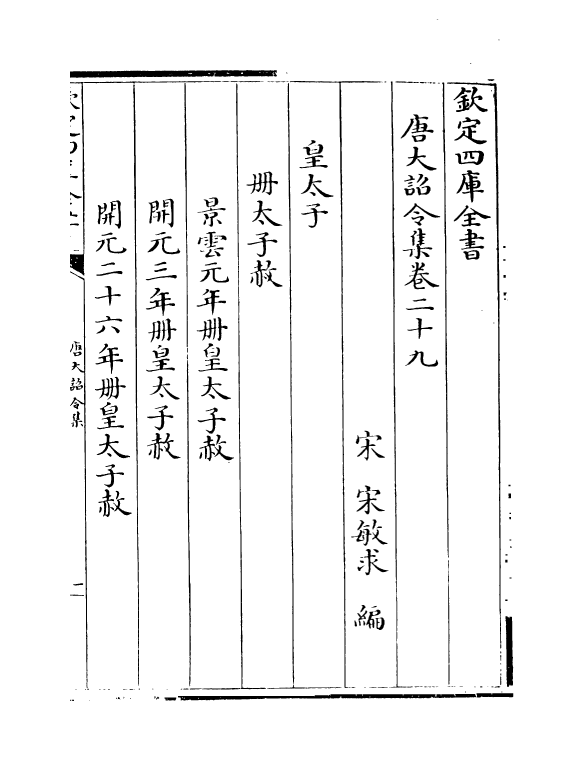 欽定四庫全書
唐大詔令集卷二十九
宋　宋敏求　編
皇太子
冊太子赦
景雲元年冊皇太子赦
開元三年冊皇太子赦
開元二十六年冊皇太子赦
唐大詔令集